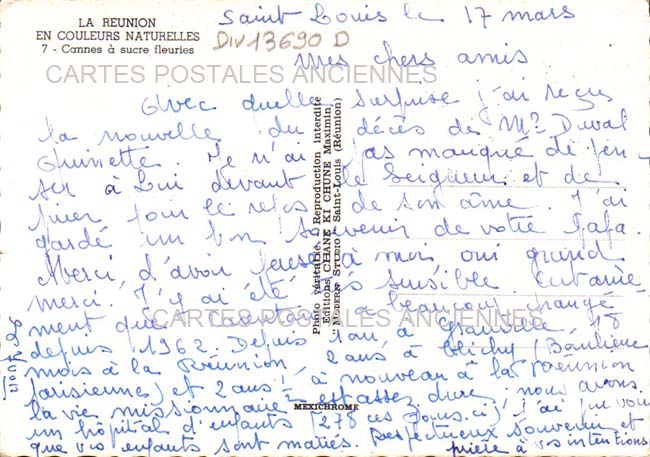 LA REUNION
EN COULEURS NATURELLES
7 - Cannes à sucre fleuries
Saint Louis le 17 mars
Div 13690 D
mes chers amis
CARTES POSTALES ANCIENNES
Avec quelle surprise j'ai reçu
la nouvelle du décès de Mr Duval
Guinette. Je n'ai pas manqué de pen-
ser à Lui devant le Seigneur et de
prier pour le repos de son âme. J'ai
gardé un bon souvenir de votre Papa.
Merci, d'avoir pensé à moi oui grand
merci. J'y ai été très sensible.
ment que j'ai beaucoup changé
CARTES POSTALES ANCIENNES
depuis 1962. Depuis 1 an à Granville, 18
mois à la Réunion, 2 ans à Clichy (Banlieue
parisienne) et 2 ans 1/2 à nouveau à la Réunion
la vie missionnaire est assez dure, nous avons
un hôpital d'enfants (278 ces jours-ci) j'ai pu vous
que vos enfants sont mariés. Respectueux souvenir et
prière à vos intentions
Photo véritable. Reproduction interdite
Editions CHANE KI CHUNE Maximin
"MODERN STUDIO" Saint-Louis (Réunion)
MEXICHROME